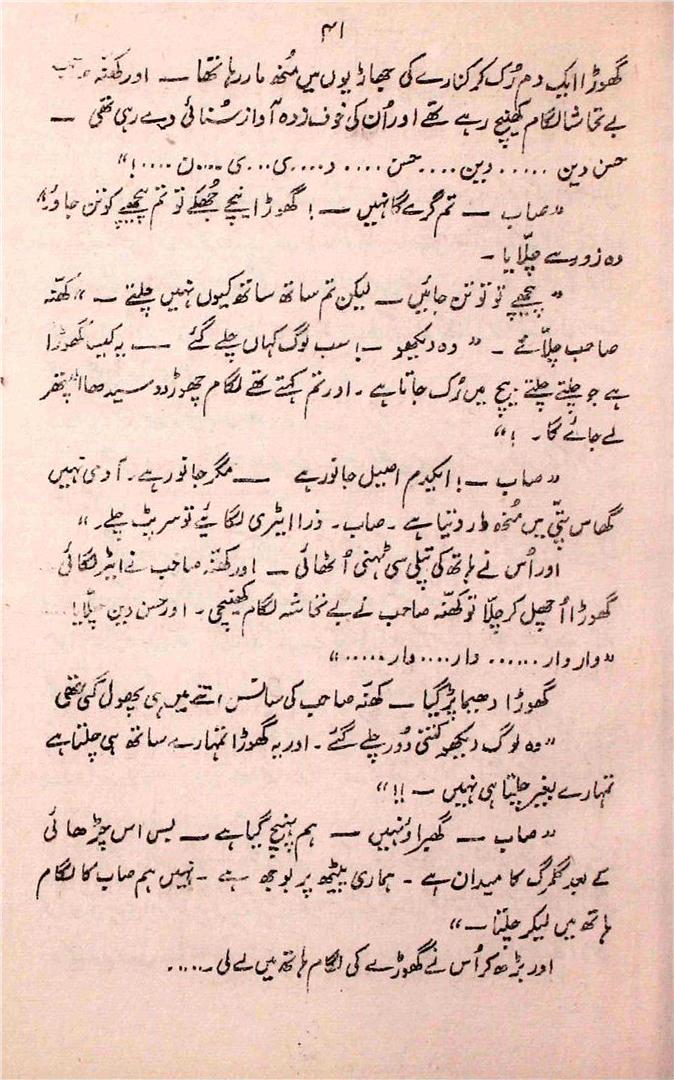 ۴۱
گھوڑا ایک دم رُک کر کنارے کی جھاڑیوں میں مُنھ مار رہا تھا — اور کھنّہ صاحب
بے تحاشا لگام کھینچ رہے تھے اور اُن کی خوف زدہ آواز سُنائی دے رہی تھی —
حسن دین ..... دین.... حسن .... د....ی...ی....ن ....!"
"صاب — تم گرے گا نہیں —! گھوڑا نیچے جُھکے تو تم پیچھے کو تن جاوٴ"
وہ زور سے چلّایا -
"پیچھے تو تن جائیں — لیکن تم ساتھ ساتھ کیوں نہیں چلتے —" کھنّہ
صاحب چلّائے - "وہ دیکھو —! سب لوگ کہاں چلے گئے — یہ کیسا گھوڑا
ہے جو چلتے چلتے بیچ میں رُک جاتا ہے - اور تم کہتے تھے لگام چھوڑ دو سیدھا اُپتھر
لے جائے گا - !"
"صاب —! ایکدم اصیل جانور ہے — مگر جانور ہے - آدمی نہیں
گھاس پتّی میں مُنھ مار دیتا ہے - صاب - ذرا ایٹری لگائیے تو سرپٹ چلے -"
اور اُس نے ہاتھ کی پتلی سی ٹہنی اُٹھائی — اور کھنّہ صاحب نے ایٹر لگائی
گھوڑا اُچھل کر چلا تو کھنّہ صاحب نے بے تحاشہ لگام کھینچی - اور حسن دین چلّایا
"وار وار ...... وار.... وار....."
گھوڑا دھیما پڑ گیا — کھنّہ صاحب کی سانس اتنے میں ہی پھول گئی تھی
"وہ لوگ دیکھو کتنی دُور چلے گئے - اور یہ گھوڑا تمہارے ساتھ ہی چلتا ہے
تمہارے بغیر چلتا ہی نہیں —!!"
"صاب — گھبراوٴ نہیں — ہم پہنچ گیا ہے — بس اس چڑھائی
کے بعد گلمرگ کا میدان ہے - ہماری پیٹھ پر بوجھ ہے - نہیں ہم صاب کا لگام
ہاتھ میں لیکر چلتا —"
اور بڑھ کر اُس نے گھوڑے کی لگام ہاتھ میں لے لی -.....